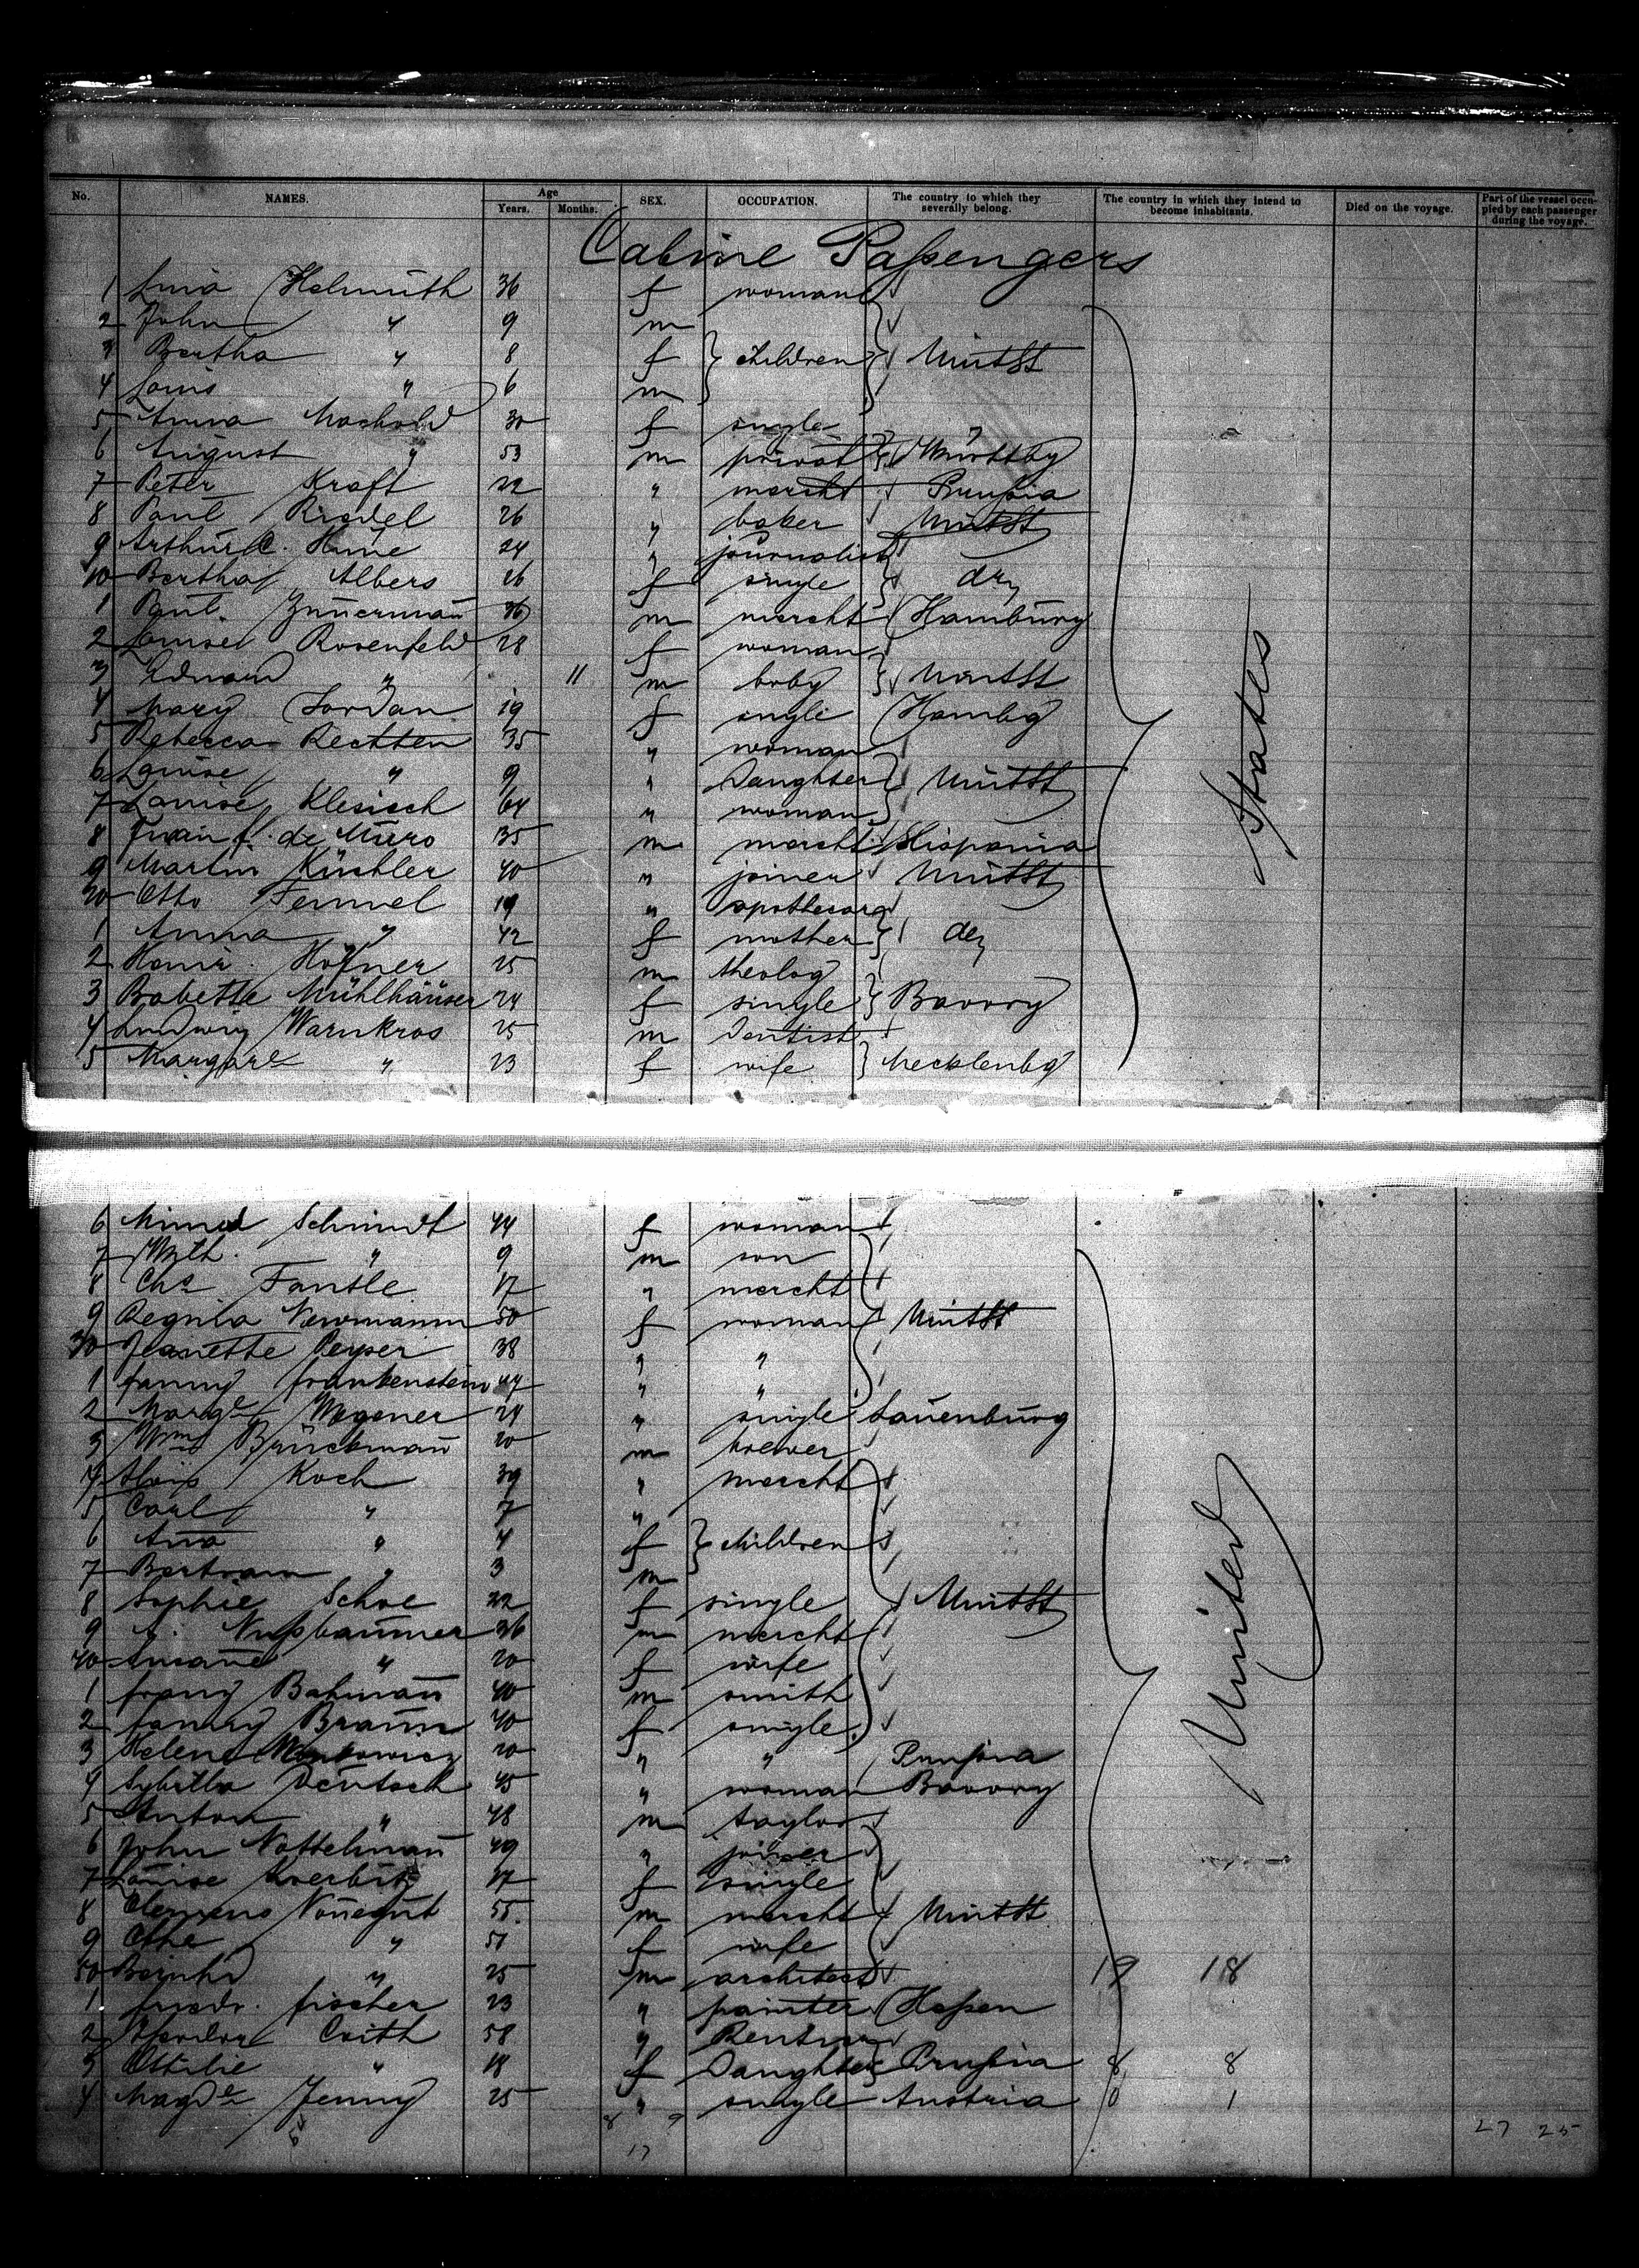 No. NAMES. Age Years. Months. SEX. OCCUPATION. The country to which they severally belong. The country in which they intend to become inhabitants. Died on the voyage. Part of the vessel occupied by each passenger during the voyage.
Cabine Paſsengers
1 Helmuth 36 f woman
2 John " 9 m
3 Bertha " 8 f children UnitSt
4 Louis " 6 m
5 Anna 30 f single
6 August " 53 m privat Württbg
7 Peter Kraft 22 " mercht Pruſsia
8 Paul Riedel 26 " baker UnitSt
9 Arthur C. 24 " journalist
10 Bertha Albers 26 f single do
1 Paul Zim̄erman̄ 36 m mercht Hamburg
2 Louise Rosenfeld 28 f woman
3 " 11 m baby UnitSt
4 Mary Jordan 19 f single Hambg
5 Rebecca Rechten 35 " woman
6 Louise " 9 " Daughter UnitSt
7 Louise 64 " woman
8 Juan f. de Muro 35 m mercht Hispania
9 Martin Küchler 40 " joiner UnitSt
20 Otto Femmel 19 " apothecary
1 Anna " 42 f mother do
2 Höfner 25 m theolog
3 Babette Mühlhäuser 24 f single Bavory
4 Ludwig Warnkros 25 m Dentist
5 " 23 f wife Mecklenbg
6 Schmidt 44 f woman
7 " 9 m son
8 Chs 17 " mercht
9 Newmann 50 f woman UnitSt
30 Jeanette Peyser 38 " "
1 fanny frankenstein 47 " "
2 Wegener 24 " single Lauenburg
3 Wm Brückman̄ 20 m brewer
4 Koch 39 " mercht
5 Carl " 7 "
6 An̄a " 4 f children
7 Bertram " 3 m
8 Sophie 22 f single UnitSt
9 Nuſsbaumer 36 m mercht
40 " 20 f wife
1 franz 40 m smith
2 fanny Braun 40 f single
3 Helene 20 " " Pruſsia
4 Deutsch 45 " woman Bavory
5 Anton " 48 m taylor
6 John Nottelman̄ 49 " joiner
7 Louise 17 f single
8 Clemens Von̄egut 55 m mercht UnitSt
9 Cthe " 51 f wife
50 Bernhd " 25 m architect 19 18
1 friedr. fischer 23 " painter Heſsen
2 58 "
3 Ottilie " 18 f Daughter Pruſsia 8 8
4 Jenny 25 " single Austria 0 1
United States
17
27 25